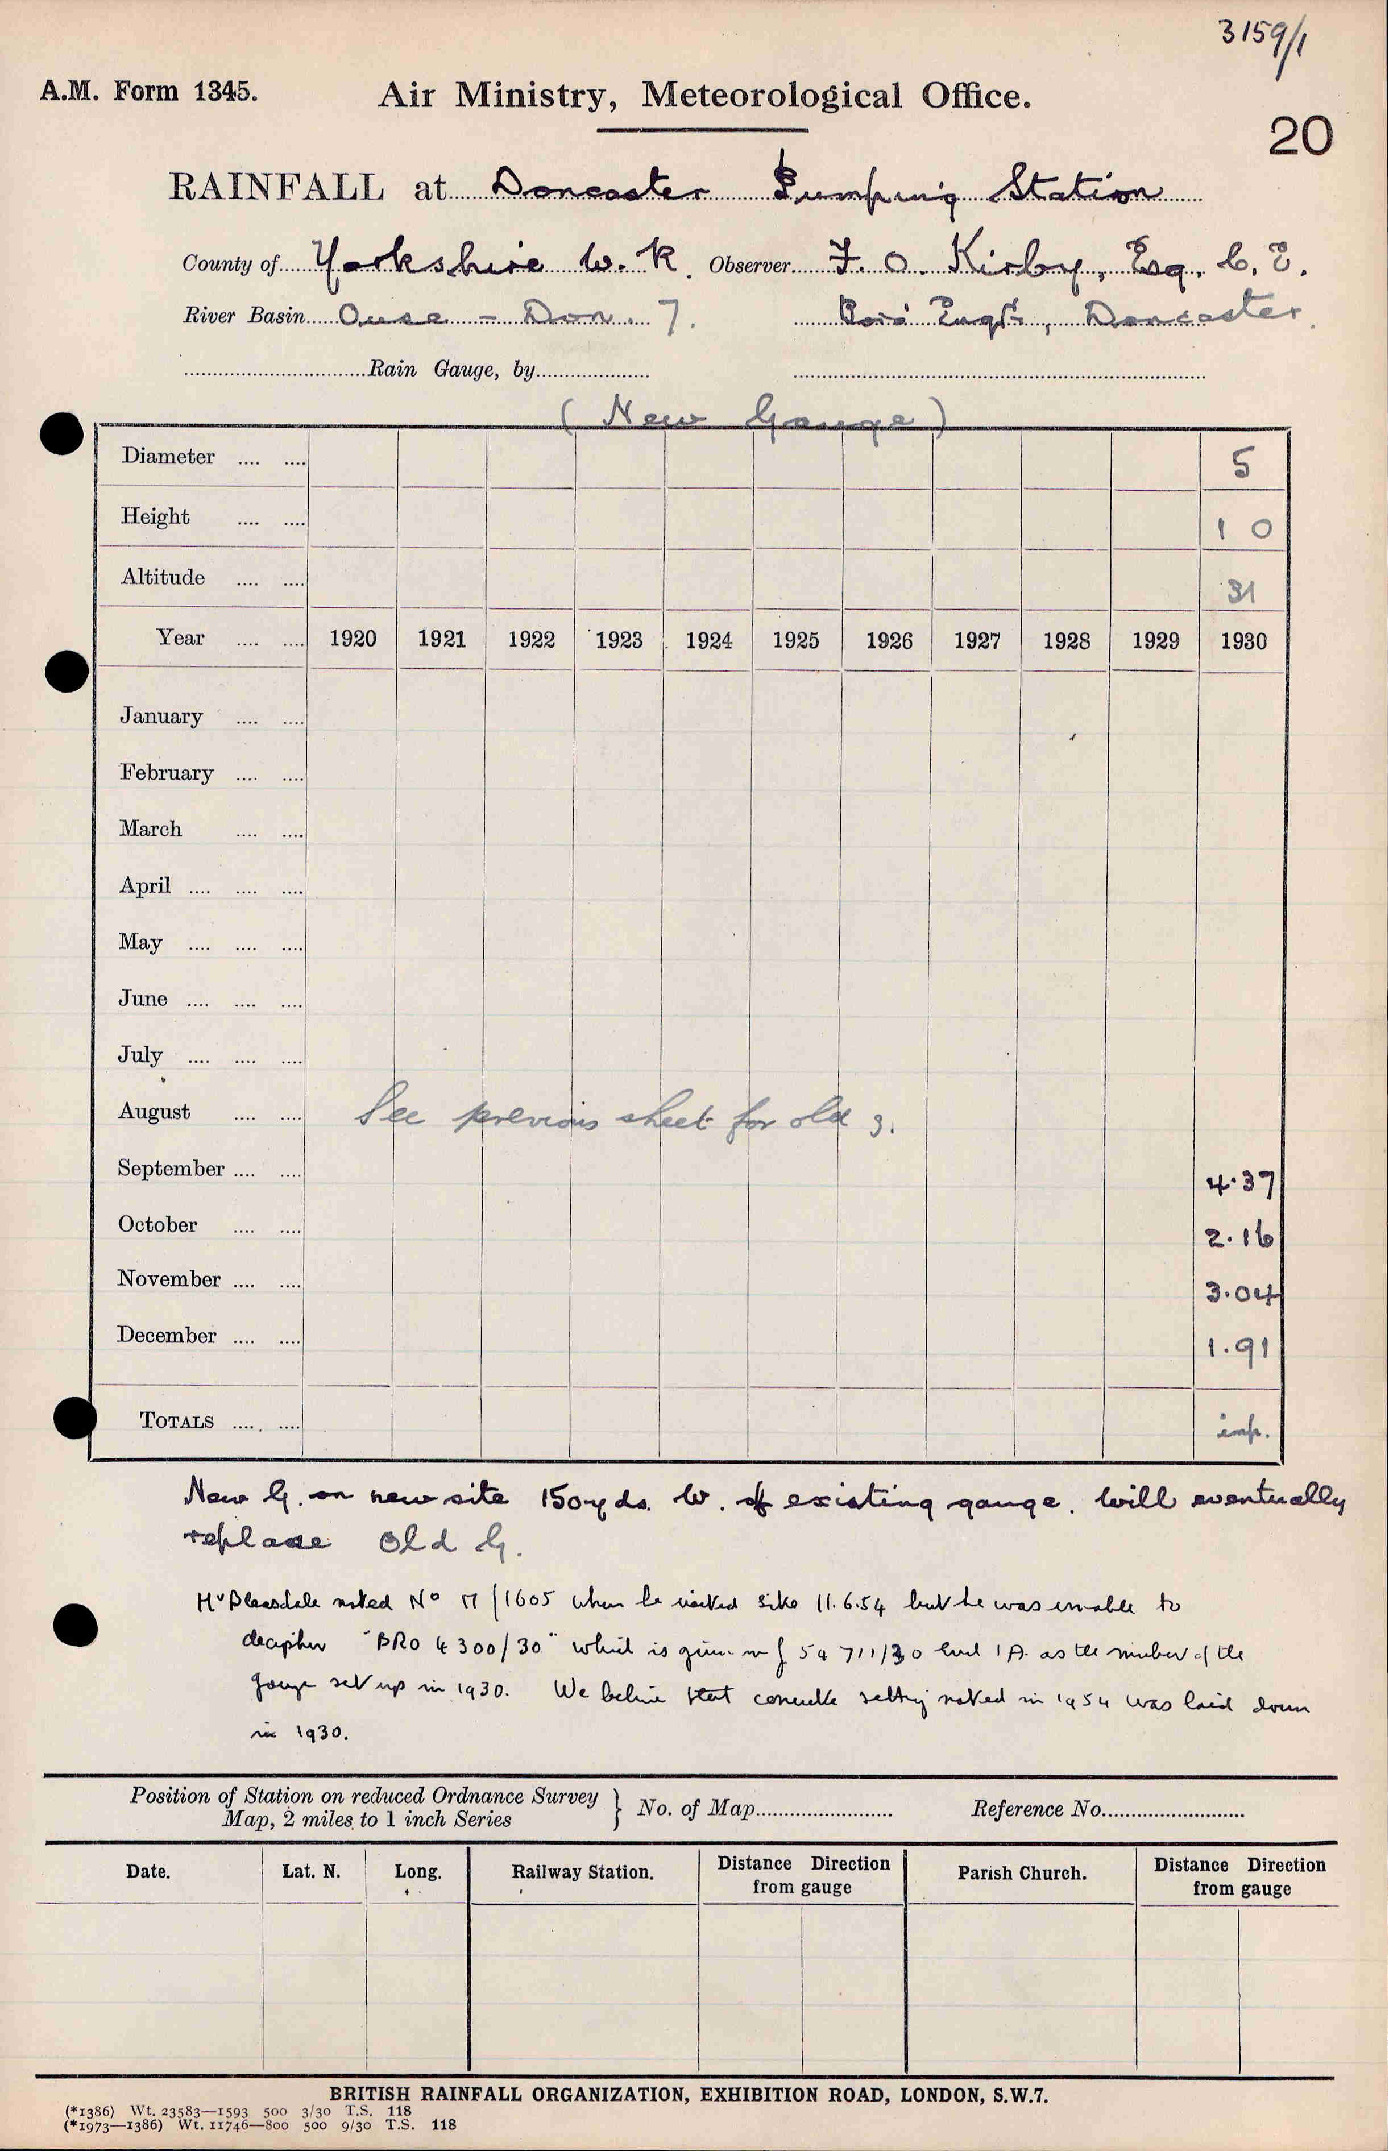 3159/1
A.M. Form 1345. Air Ministry, Meteorological Office.
20
RAINFALL at Doncaster Pumping Station
County of Yorkshire W. R. Observer F. O. Kirby, Esq, C. E.
River Basin Ouse - Don. 7. Boro' Engr., Doncaster.
Rain Gauge, by
(New Gauge)
Diameter .... .... 5
Height .... .... 1 0
Altitude .... .... 31
Year .... .... 1920 1921 1922 1923 1924 1925 1926 1927 1928 1929 1930
January .... ....
February .... ....
March .... ....
April .... .... ....
May .... .... ....
June .... .... ....
July .... .... ....
August .... .... See previous sheet for old g.
September .... .... 4.37
October .... .... 2.16
November .... .... 3.04
December .... .... 1.91
TOTALS .... .... imp.
New G. on new site 150 yds. W. of existing gauge. Will eventually
replace Old G.
Mr Bleasdale noted No M/1605 when he visited site 11.6.54 but he was unable to
decipher "BRO 4300/30" which is given on f 5a 711/30 encl 1A. as the number of the
gauge set up in 1930. We believe that concrete setting noted in 1954 was laid down
in 1930.
Position of Station on reduced Ordnance Survey
Map, 2 miles to 1 inch Series } No. of Map Reference No.
Date. Lat. N. Long. Railway Station. Distance Direction from gauge Parish Church. Distance Direction from gauge
BRITISH RAINFALL ORGANIZATION, EXHIBITION ROAD, LONDON, S.W.7.
(*1386) Wt. 23583—1593 500 3/30 T.S. 118
(*1973—1386) Wt. 11746—800 500 9/30 T.S. 118